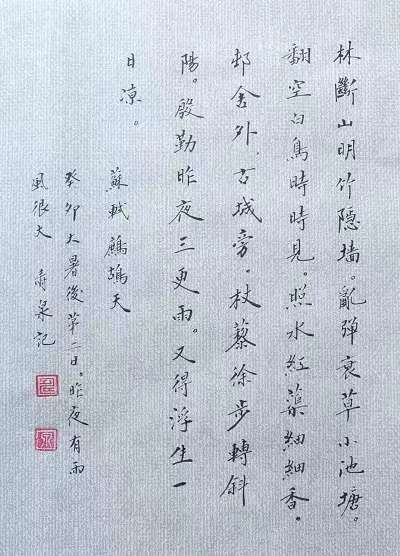 林斷山明竹隱墙。亂彈衰草小池塘。
翻空白鳥時時見。照水紅蕖細細香。
邨舍外、古城旁。杖藜徐步轉斜
陽。殷勤昨夜三更雨。又得浮生一
日凉。
蘇軾鷓鴣天
癸卯大暑後第二日。昨夜有雨
風很大 泉記